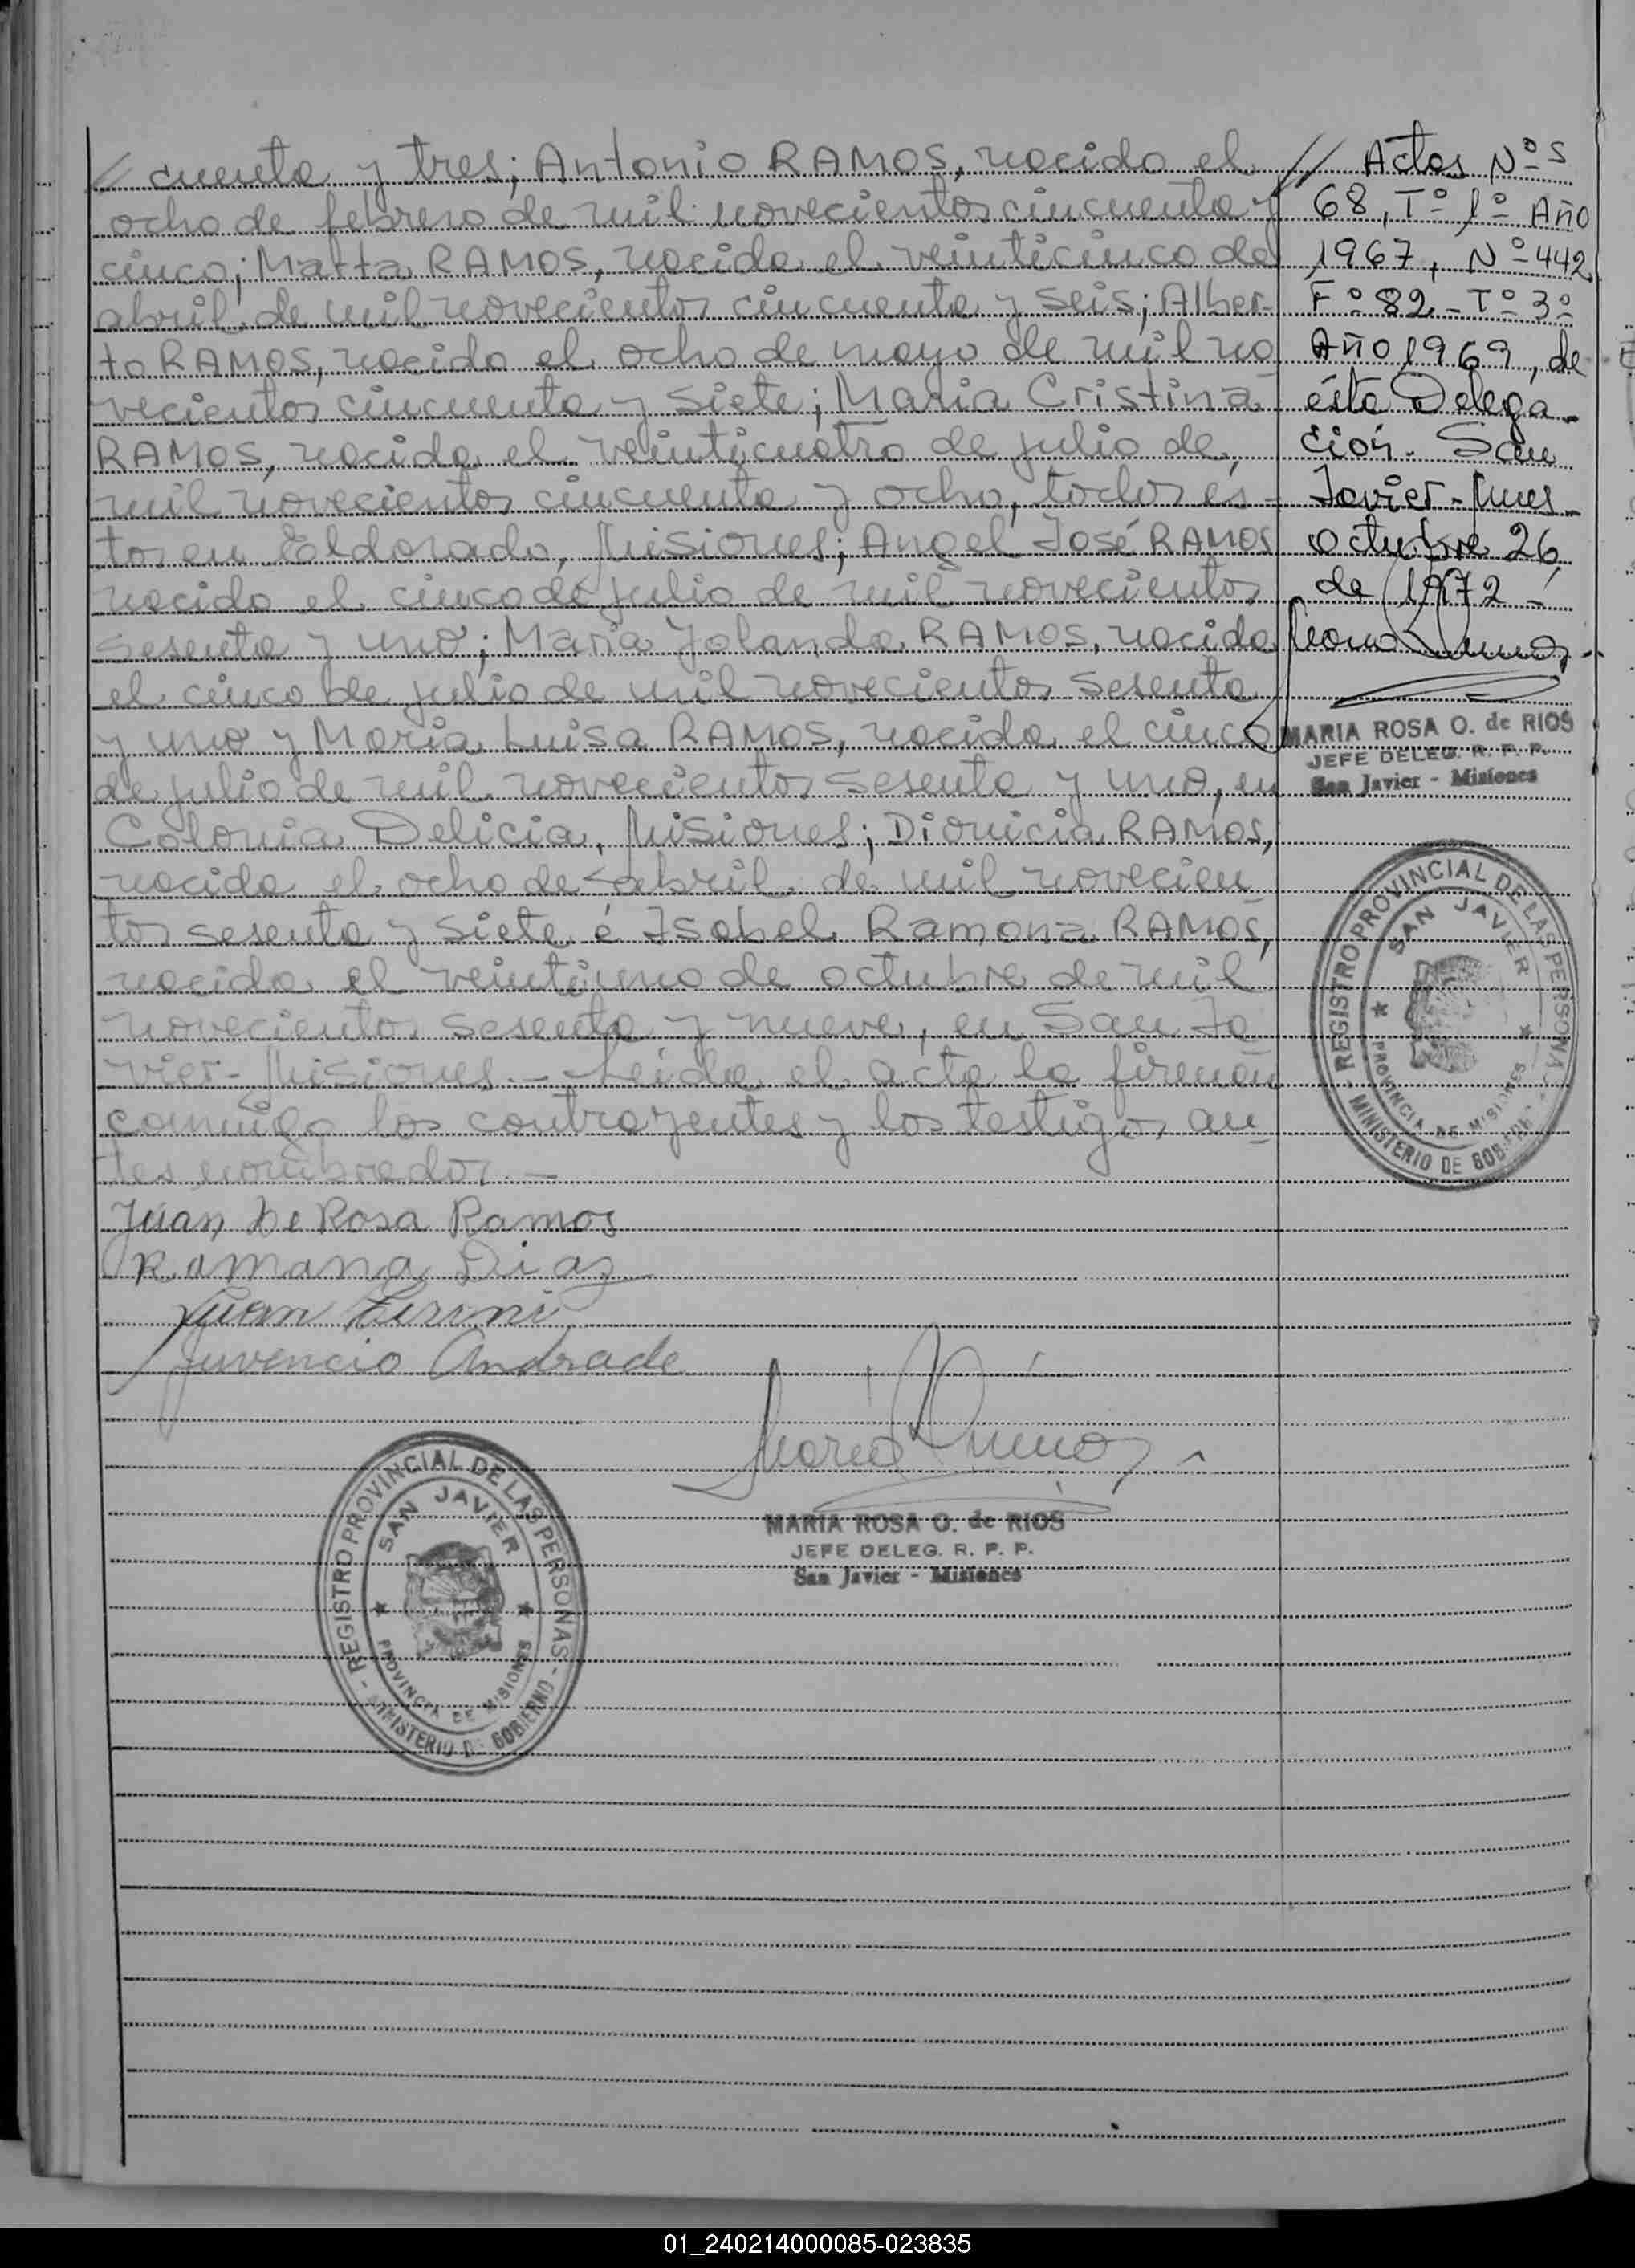 // cuenta y tres; Antonio RAMOS, nacido el
ocho de febrero de mil novecientos cincuenta y
cinco; Marta RAMOS, nacida el veinticinco de
abril de mil novecientos cincuenta y seis; Alber-
to RAMOS, nacido el ocho de mayo de mil no
vecientos cincuenta y siete; Maria Cristina
RAMOS, nacida el veinticuatro de julio de
mil novecientos cincuenta y ocho, todos és-
tos en Eldorado, Misiones; Angel José RAMOS
nacido el cinco de julio de mil novecientos
sesenta y uno; Maria Yolanda RAMOS, nacida
el cinco de julio de mil novecientos sesenta
y uno y Maria Luisa RAMOS, nacida el cinco
de julio de mil novecientos sesenta y uno, en
Colonia Delicia, Misiones; Dionicia RAMOS,
nacida el ocho de abril de mil novecien
tos sesenta y siete é Isabel Ramona RAMOS,
nacida el veintiuno de octubre de mil
novecientos sesenta y nueve, en San Ja
vier- Misiones.- Leída el acta la firman
conmigo los contrayentes y los testigos an-
tes nombrados.-
Juan De Rosa Ramos
Ramona Diaz
Juan
Juvencio Andrade
MARIA ROSA O. de RIOS
JEFE DELEG. R. P. P.
San Javier - Misiones
REGISTRO PROVINCIAL DE LAS PERSONAS
SAN JAVIER
PROVINCIA DE MISIONES
MINISTERIO DE GOBIERNO
// Actas Nºs
68, Tº 1º Año
1967, Nº 442
Fº 82 - Tº 3º
Año 1969, de
ésta Delega-
ción. San
Javier - Mnes
octubre 26
de 1972 -
MARIA ROSA O. de RIOS
JEFE DELEG. R. P. P.
San Javier - Misiones
REGISTRO PROVINCIAL DE LAS PERSONAS
SAN JAVIER
PROVINCIA DE MISIONES
MINISTERIO DE GOBIERNO
01_240214000085-023835